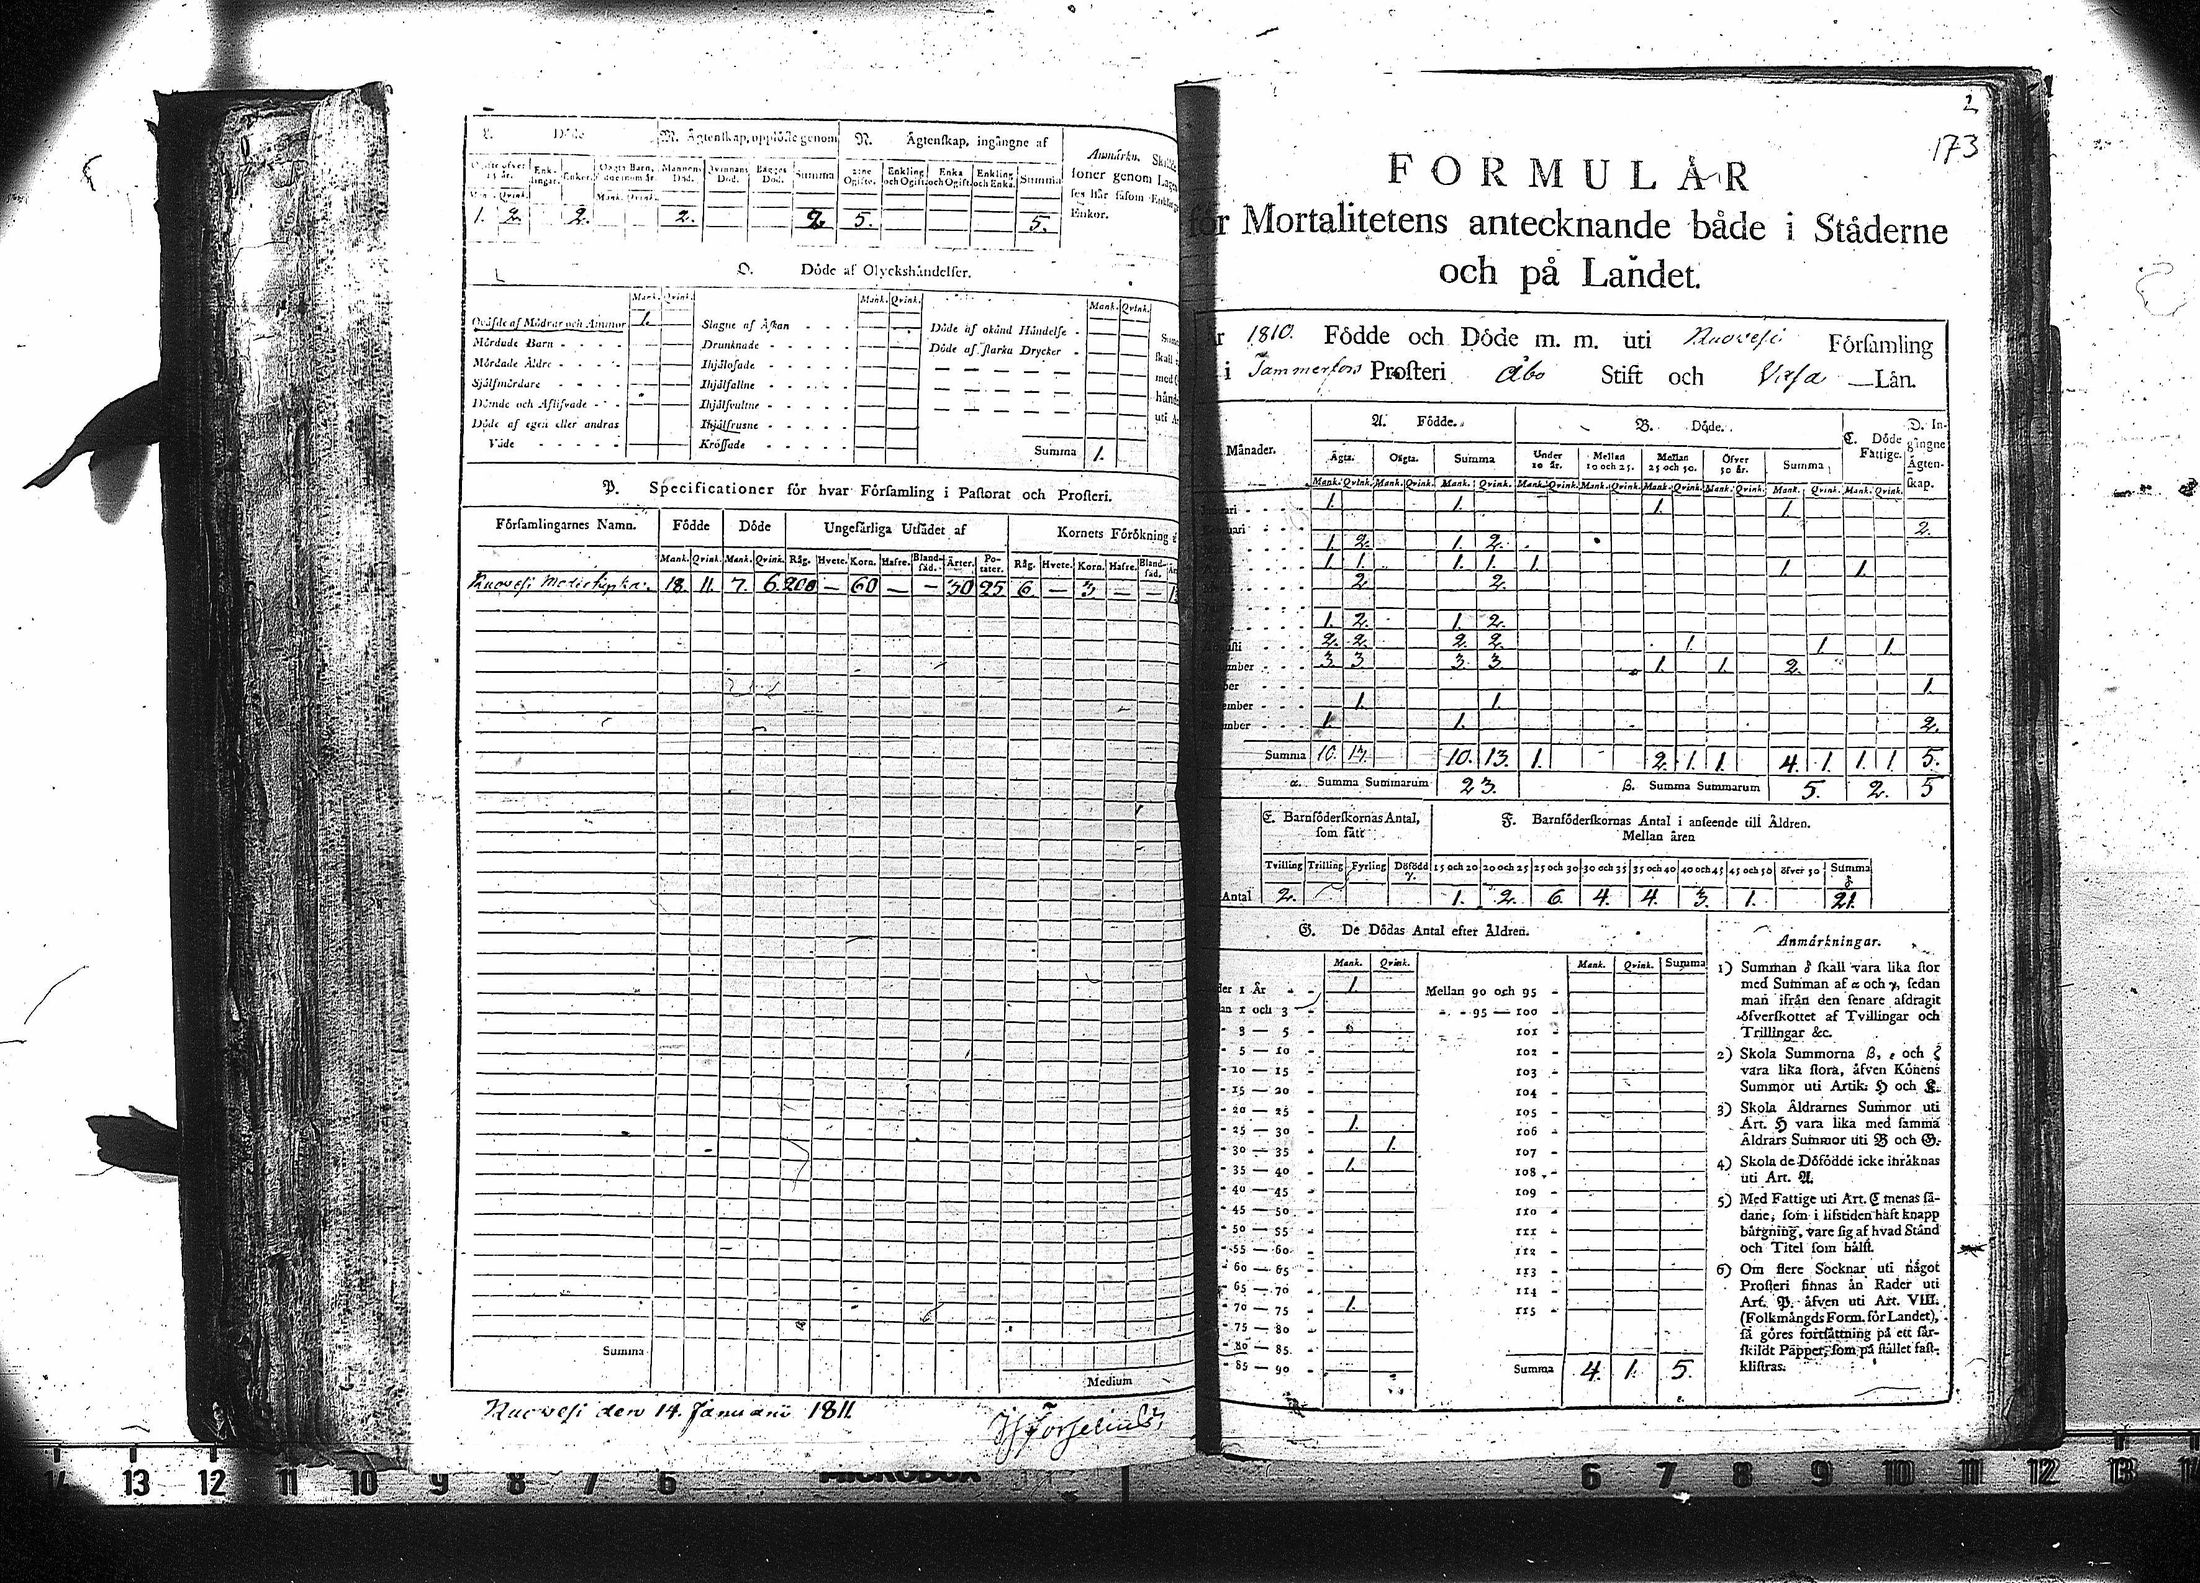 Döde
M. Ägtenskap, upplöste genom
N. Ägtenskap, ingångne af
Anmärkn.
Enklingar.
Enkor.
Mannens Död.
Qvinnans Död.
Bägges Död.
Summa
Enkling och Ogift.
Enka och Ogift.
Enkling och Enka.
Summa
Enkor.
1. 2. 2. 2. 2. 5. 5.
O. Döde af Olyckshändelser.
Mank. Qvink. Mank. Qvink. Mank. Qvink.
Qväfde af Mödrar och Ammor 1.
Mördade Barn
Mördade Äldre
Sjålfmördare
Dömde och Aflifvade
Döde af egen eller andras
Våde
Slagne af Åskan
Drunknade
Ihjälosade
Ihjälfallne
Ihjälsvultne
Ihjälfrusne
Krossade
Döde af okänd Händelse
Döde af starka Drycker
Summa 1.
P. Specificationer för hvar Församling i Pastorat och Prosteri.
Församlingarnes Namn. Födde Döde Ungefärliga Utsädet af Kornets Förökning
Mank. Qvink. Mank. Qvink. Råg. Hvete. Korn. Hafre. Blandsäd. Ärter. Potater. Råg. Hvete. Korn. Hafre. Blandsäd.
Ruovesi 18. 11. 7. 6. 200 — 60 — — 30 25 6. — 3. — —
Summa
Medium
Ruovesi den 14. Januarii 1811.
2
173
FORMULÄR
för Mortalitetens antecknande både i Städerne
och på Landet.
År 1810. Födde och Döde m. m. uti Ruovesi Församling
i Tammerfors Prosteri Åbo Stift och Vasa Län.
Månader.
A. Födde.
B. Döde.
C. Döde Fattige.
D. Ingångne Ägtenskap.
Ägta. Oägta. Summa
Under 10 år. Mellan 10 och 25. Mellan 25 och 50. Öfver 50 år. Summa
Mank. Qvink. Mank. Qvink. Mank. Qvink. Mank. Qvink. Mank. Qvink. Mank. Qvink. Mank. Qvink. Mank. Qvink. Mank. Qvink.
1. 1. 1. 1.
2.
1. 2. 1. 2.
1. 1. 1. 1. 1. 1. 1.
2. 2.
1. 2. 1. 2.
2. 2. 2. 2. 1. 1. 1.
3. 3. 3. 3. 1. 1. 2.
1.
1. 1.
1. 1. 2.
Summa 10. 13. 10. 13. 1. 2. 1. 1. 4. 1. 1. 1. 5.
α. Summa Summarum 23. β. Summa Summarum 5. 2. 5
E. Barnföderskornas Antal, som fått
F. Barnföderskornas Antal i anseende till Åldren.
Mellan åren
Tvilling Trilling Fyrling Döfödd γ. 15 och 20 20 och 25 25 och 30 30 och 35 35 och 40 40 och 45 45 och 50 öfver 50 Summa δ
Antal 2. 1. 2. 6. 4. 4. 3. 1. 21.
G. De Dödas Antal efter Åldren.
Mank. Qvink. Mank. Qvink. Summa
1 År 1. Mellan 90 och 95
1 och 3 95 — 100
3 — 5 101
5 — 10 102
10 — 15 103
15 — 20 104
20 — 25 105
25 — 30 1. 106
30 — 35 1. 107
35 — 40 1. 108
40 — 45 109
45 — 50 110
50 — 55 111
55 — 60 112
60 — 65 113
65 — 70 114
70 — 75 1. 115
75 — 80
80 — 85
85 — 90 Summa 4. 1. 5.
Anmärkningar.
1) Summan δ skall vara lika stor
med Summan af α och γ, sedan
man ifrån den senare afdragit
öfverskottet af Tvillingar och
Trillingar &c.
2) Skola Summorna β, ε och ζ
vara lika stora, äfven Könens
Summor uti Artik. H och L.
3) Skola Åldrarnes Summor uti
Art. H vara lika med samma
Åldrars Summor uti B och G.
4) Skola de Döfödde icke inräknas
uti Art. A.
5) Med Fattige uti Art. C menas så-
dane, som i lifstiden haft knapp
bärgning, vare sig af hvad Stånd
och Titel som hälst.
6) Om flere Socknar uti något
Prosteri finnas än Rader uti
Art. P. äfven uti Art. VIII.
(Folkmängds Form. för Landet),
så göres fortsättning på ett sär-
skildt Papper, som på stället fast-
klistras.
14 13 12 11 10 9 8 7 6 MICROBOX 6 7 8 9 10 11 12 13 14